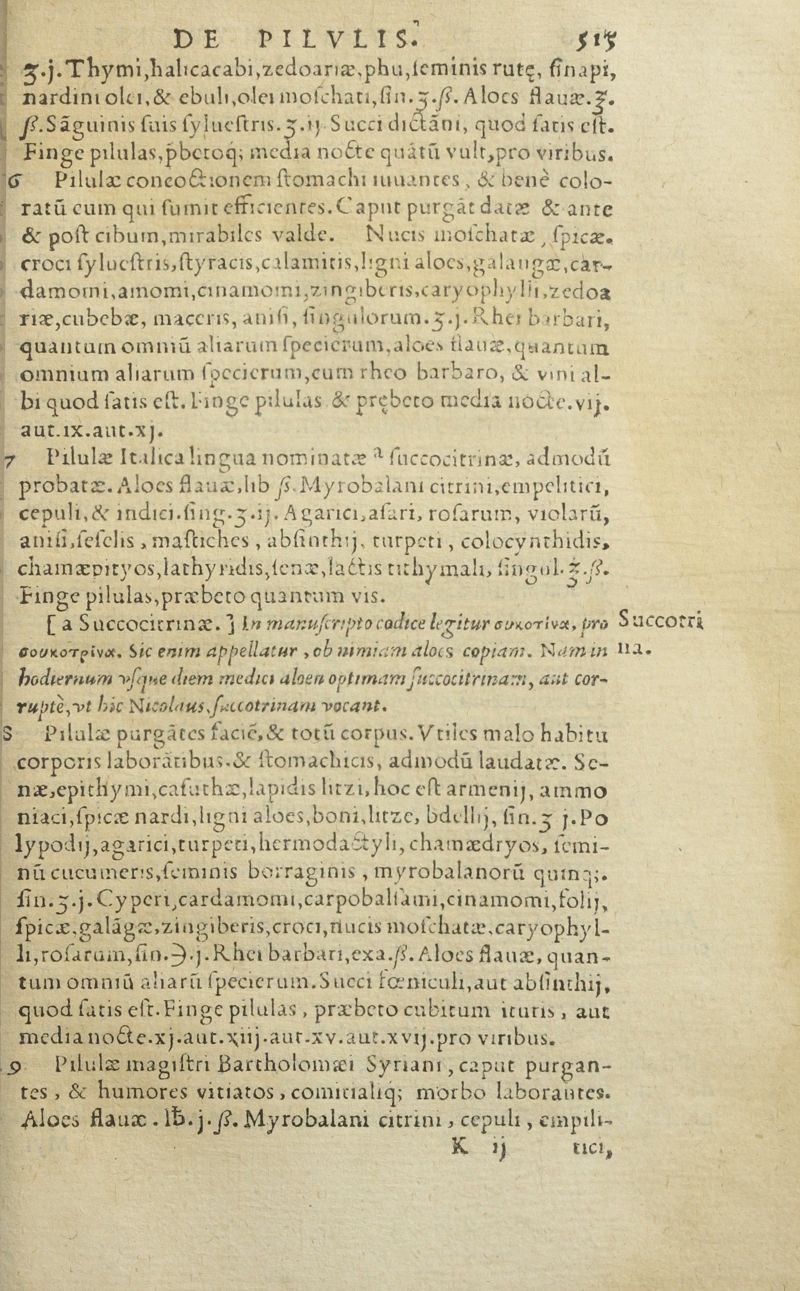 DE PILVLIS. 515
ʒ.j. Thymi, halicacabi, zedoariæ, phu, seminis rutę, sinapi,
nardini olei, & ebuli, olei moschati, sin. ʒ.ß. Aloes flauæ. ℥.
ß. Sãguinis suis syluestris. ʒ.ij. Succi dictãni, quod satis est.
Finge pilulas, pbetoq; media nocte quãtũ vult, pro viribus.
6 Pilulæ concoctionem stomachi iuuantes, & bene colo-
ratũ eum qui sumit efficientes. Caput purgãt datæ & ante
& post cibum, mirabiles valde. Nucis moschatæ, spicæ,
croci syluestris, styracis, calamitis, ligni aloes, galangæ, car-
damomi, amomi, cinamomi, zingiberis, caryophylli, zedoa
riæ, cubebæ, maceris, anisi, singulorum. ʒ.j. Rhei barbari,
quantum omniũ aliarum specierum, aloes flauæ, quantum
omnium aliarum specierum, cum rheo barbaro, & vini al-
bi quod satis est. Finge pilulas & prębeto media nocte. vij.
aut. ix. aut. xj.
7 Pilulæ Italica lingua nominatæ a succocitrinæ, admodũ
probatæ. Aloes flauæ, lib ß. Myrobalani citrini, empelitici,
cepuli, & indici. sing. ʒ.ij. Agarici, asari, rosarum, violarũ,
anisi, seselis, mastiches, absinthij, turpeti, colocynthidis,
chamæpityos, lathyridis, senæ, lactis tithymali, singul. ℥.ß.
Finge pilulas, præbeto quantum vis.
[ a Succocitrinæ. ] In manuscripto codice legitur συκοτίνα, pro Succotri
σουκοτρίνα. Sic enim appellatur, ob nimiam aloes copiam. Nam in na.
hodiernum vsque diem medici aloen optimam succocitrinam, aut cor-
rupte, vt hic Nicolaus, succotrinam vocant.
8 Pilulæ purgãtes faciẽ, & totũ corpus. Vtiles malo habitu
corporis laborãtibus. & stomachicis, admodũ laudatæ. Se-
næ, epithymi, casuthæ, lapidis litzi, hoc est armenij, ammo
niaci, spicæ nardi, ligni aloes, boni, litze, bdellij, sin. ʒ j. Po
lypodij, agarici, turpeti, hermodactyli, chamædryos, semi-
nũ cucumeris, seminis borraginis, myrobalanorũ quinq;.
sin. ʒ.j. Cyperi, cardamomi, carpobalsami, cinamomi, folij,
spicæ, galãgæ, zingiberis, croci, nucis moschatæ, caryophyl-
li, rosarum, sin. ℈.j. Rhei barbari, exa. ß. Aloes flauæ, quan-
tum omniũ aliarũ specierum. Succi fœniculi, aut absinthij,
quod satis est. Finge pilulas, præbeto cubitum ituris, aut
media nocte. xj. aut. xiij. aut. xv. aut. xvij. pro viribus.
9 Pilulæ magistri Bartholomæi Syriani, caput purgan-
tes, & humores vitiatos, comitialiq; morbo laborantes.
Aloes flauæ. lb. j. ß. Myrobalani citrini, cepuli, empili-
K ij tici,